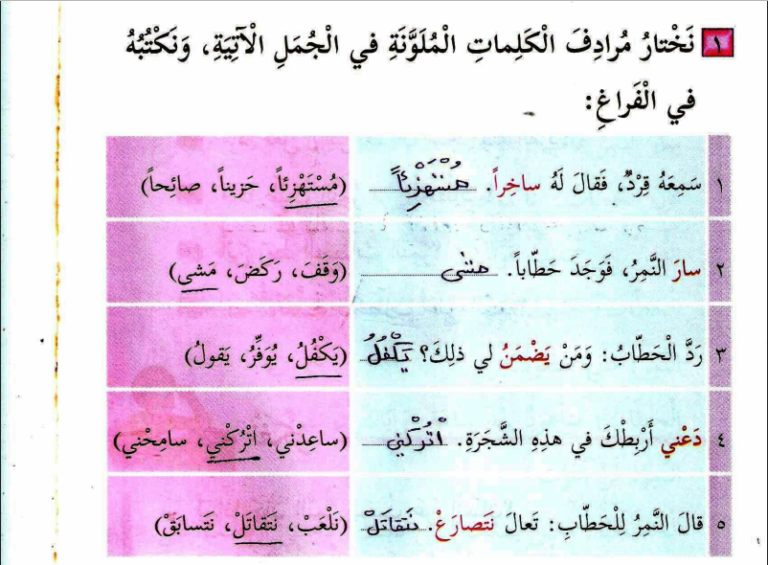 ١ نَخْتارُ مُرادِفَ الْكَلِماتِ الْمُلَوَّنَةِ في الْجُمَلِ الْآتِيَةِ، وَنَكْتُبُهُ
في الْفَراغِ:
١ سَمِعَهُ قِرْدٌ، فَقالَ لَهُ ساخِراً. مُسْتَهْزِئاً (مُسْتَهْزِئاً، حَزيناً، صائِحاً)
٢ سارَ النَّمِرُ، فَوَجَدَ حَطّاباً. مشى (وَقَفَ، رَكَضَ، مَشى)
٣ رَدَّ الْحَطّابُ: وَمَنْ يَضْمَنُ لي ذلِكَ؟ يَكْفُلُ (يَكْفُلُ، يُوَفِّرُ، يَقولُ)
٤ دَعْني أَرْبِطْكَ في هذِهِ الشَّجَرَةِ. اتْرُكْني (ساعِدْني، اتْرُكْني، سامِحْني)
٥ قالَ النَّمِرُ لِلْحَطّابِ: تَعالَ نَتَصارَعْ. نتقاتلْ (نَلْعَبْ، نَتَقاتَلْ، نَتَسابَقْ)